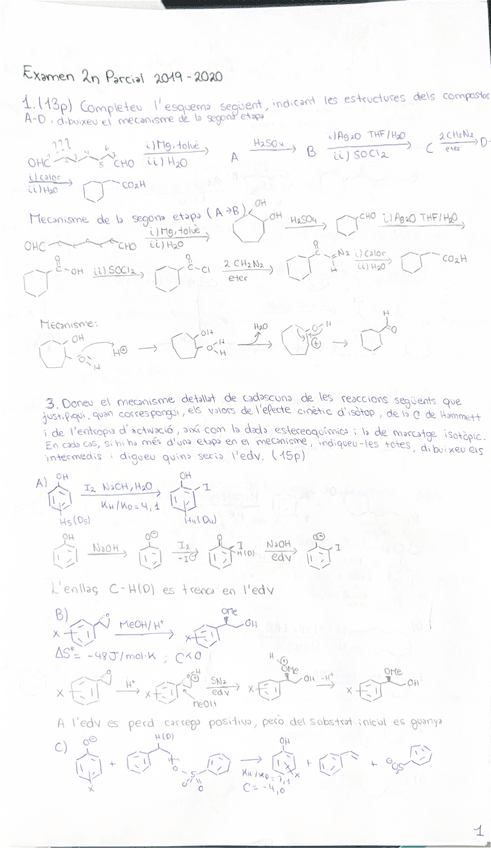 Examen 2n Parcial 2019-2020
1.(13p) Completeu l'esquema següent, indicant les estructures dels compostos
A-D i dibuixeu el mecanisme de la segona etapa
???
OHC CHO i) Mg, toluè ii) H2O A H2SO4 B i) Ag2O THF/H2O ii) SOCl2 C 2 CH2N2 eter D
i) calor ii) H2O CO2H
Mecanisme de la segona etapa (A→B)
OHC CHO i) Mg, toluè ii) H2O OH OH H2SO4 CHO i) Ag2O THF/H2O
O OH ii) SOCl2 O Cl 2 CH2N2 eter O N2 H i) calor ii) H2O CO2H
Mecanisme:
OH O H H⊕ OH O H H H2O O H ⊕ H O
3. Doneu el mecanisme detallat de cadascuna de les reaccions següents que
justifiqui, quan correspongui, els valors de l'efecte cinètic d'isòtop, de la ϱ de Hammett
i de l'entropia d'activació, així com la dada estereoquímica i la de marcatge isotòpic.
En cada cas, si hi ha més d'una etapa en el mecanisme, indiqueu-les totes, dibuixeu els
intermedis i digueu quina seria l'edv. (15p)
A) OH I2 NaOH, H2O KH/KD=4,1 OH I
H5(D5) H4(D4)
OH NaOH O⊖ I2 -I⊖ O I H(D) NaOH edv O⊖ I
L'enllaç C-H(D) es trenca en l'edv
B) X O MeOH/H+ X OMe OH
ΔS‡= -48J/mol·K ; ϱ<0
X O H+ X O H ⊕ MeOH SN2 edv X H ⊕ OMe OH -H+ X OMe OH
A l'edv es perd càrrega positiva, però del substrat inicial es guanya
C) O⊖ X + H(D) O S O O OH X + +
KH/KD=7,1
ϱ= -4,0
1